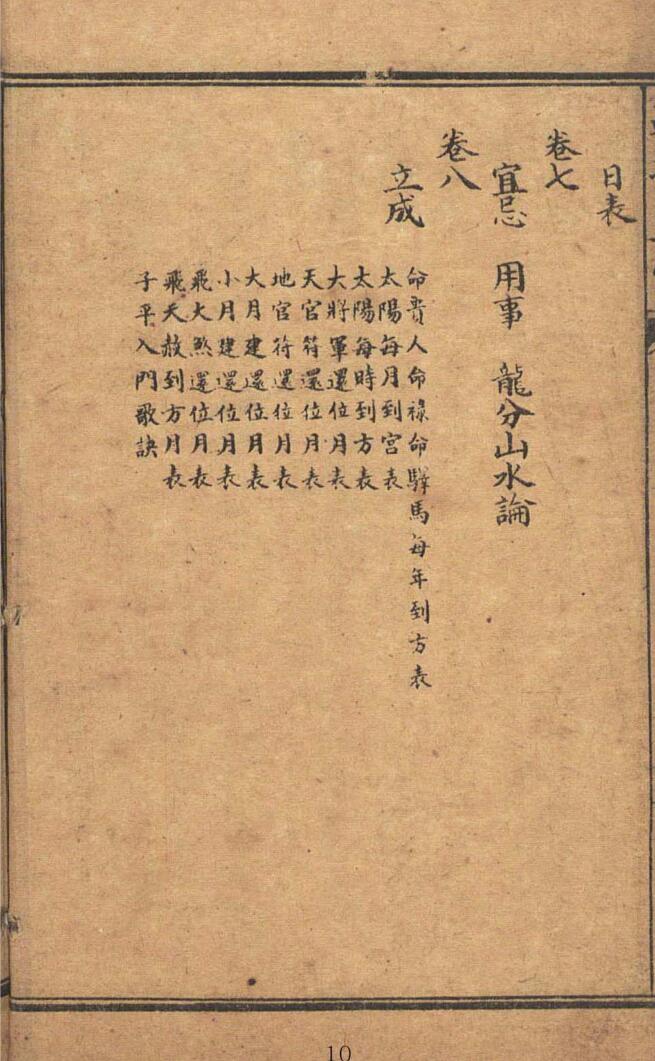 日表
卷七
宜忌 用事 龍分山水論
卷八
立成
命貴人命祿命驛馬每年到方表
太陽每月到宮表
太陽每時到方表
大將軍還位月表
天官符還位月表
地官符還位月表
大月建還位月表
小月建還位月表
飛大煞還位月表
飛天赦到方月表
子平入門歌訣
10